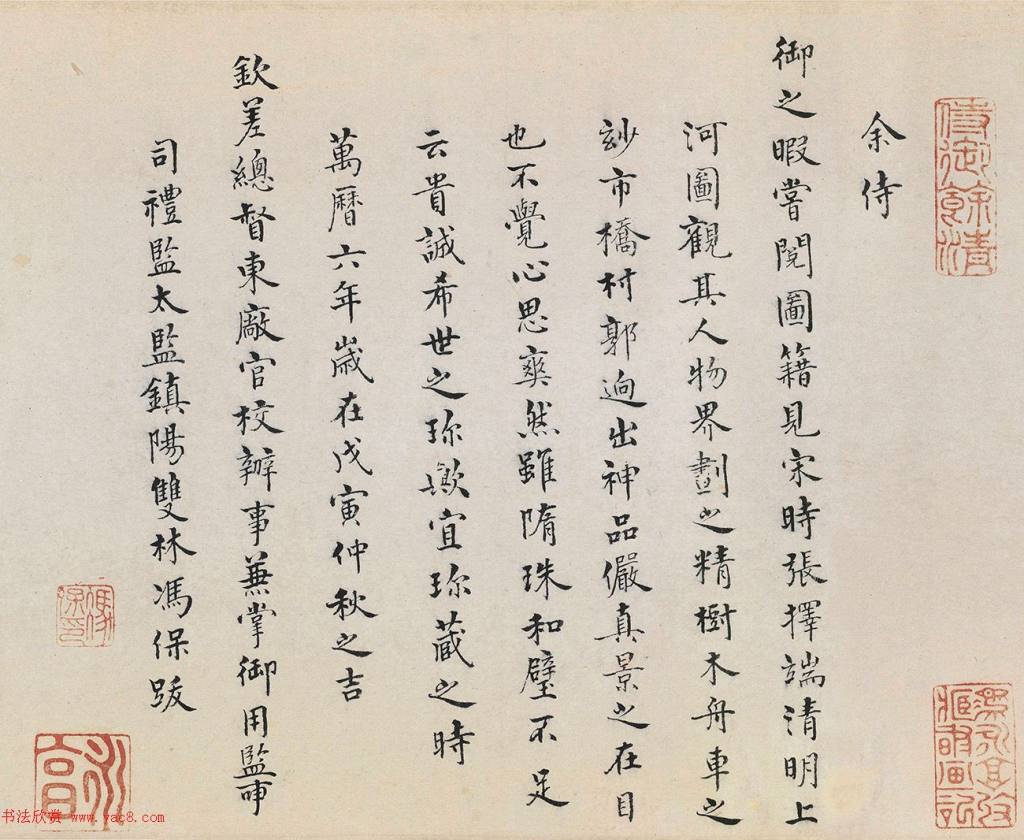 余侍
御之暇嘗閱圖籍見宋時張擇端清明上
河圖觀其人物界劃之精樹木舟車之
妙市橋村郭迥出神品儼真景之在目
也不覺心思爽然雖隋珠和璧不足
云貴誠希世之珎歟宜珎藏之時
萬曆六年歲在戊寅仲秋之吉
欽差總督東廠官校辦事兼掌御用監事
司禮監太監鎮陽雙林馮保跋
侍御餘清
書法欣赏 www.yac8.com